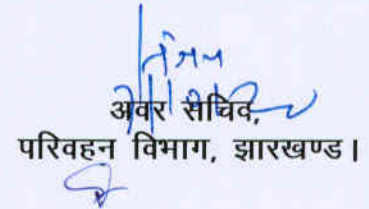 अवर सचिव,
परिवहन विभाग, झारखण्ड।